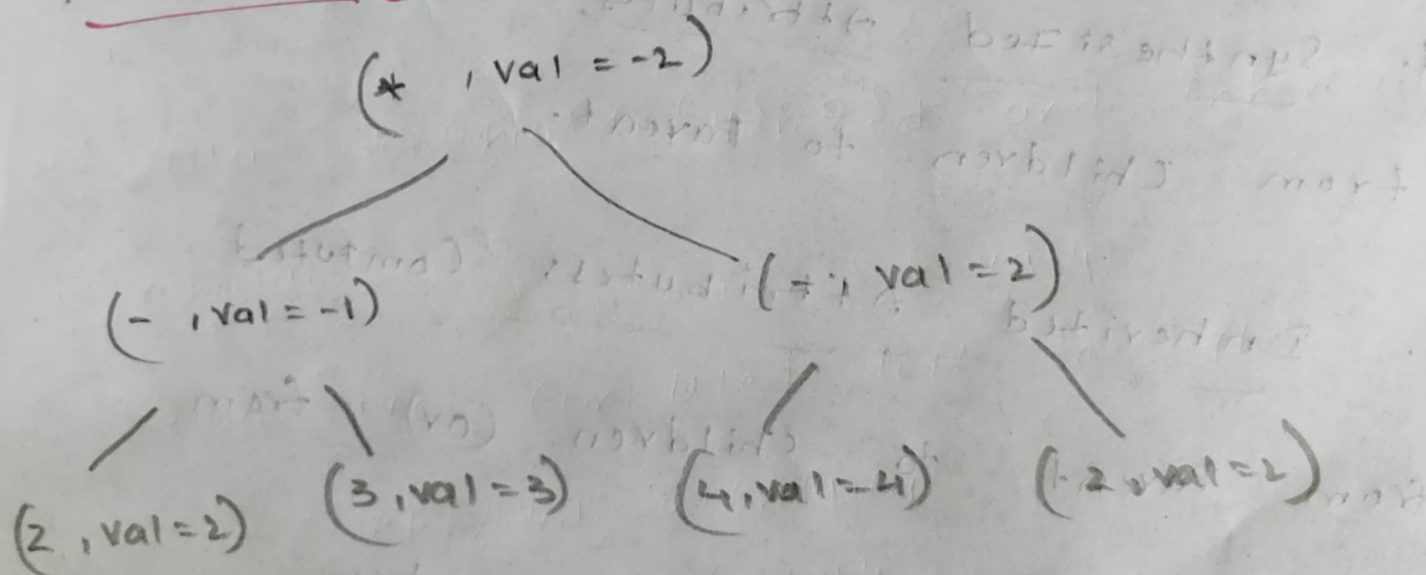 (* , val = -2)
(- , val = -1) (÷, val = 2)
(2 , val = 2) (3 , val = 3) (4, val = 4) (2, val = 2)